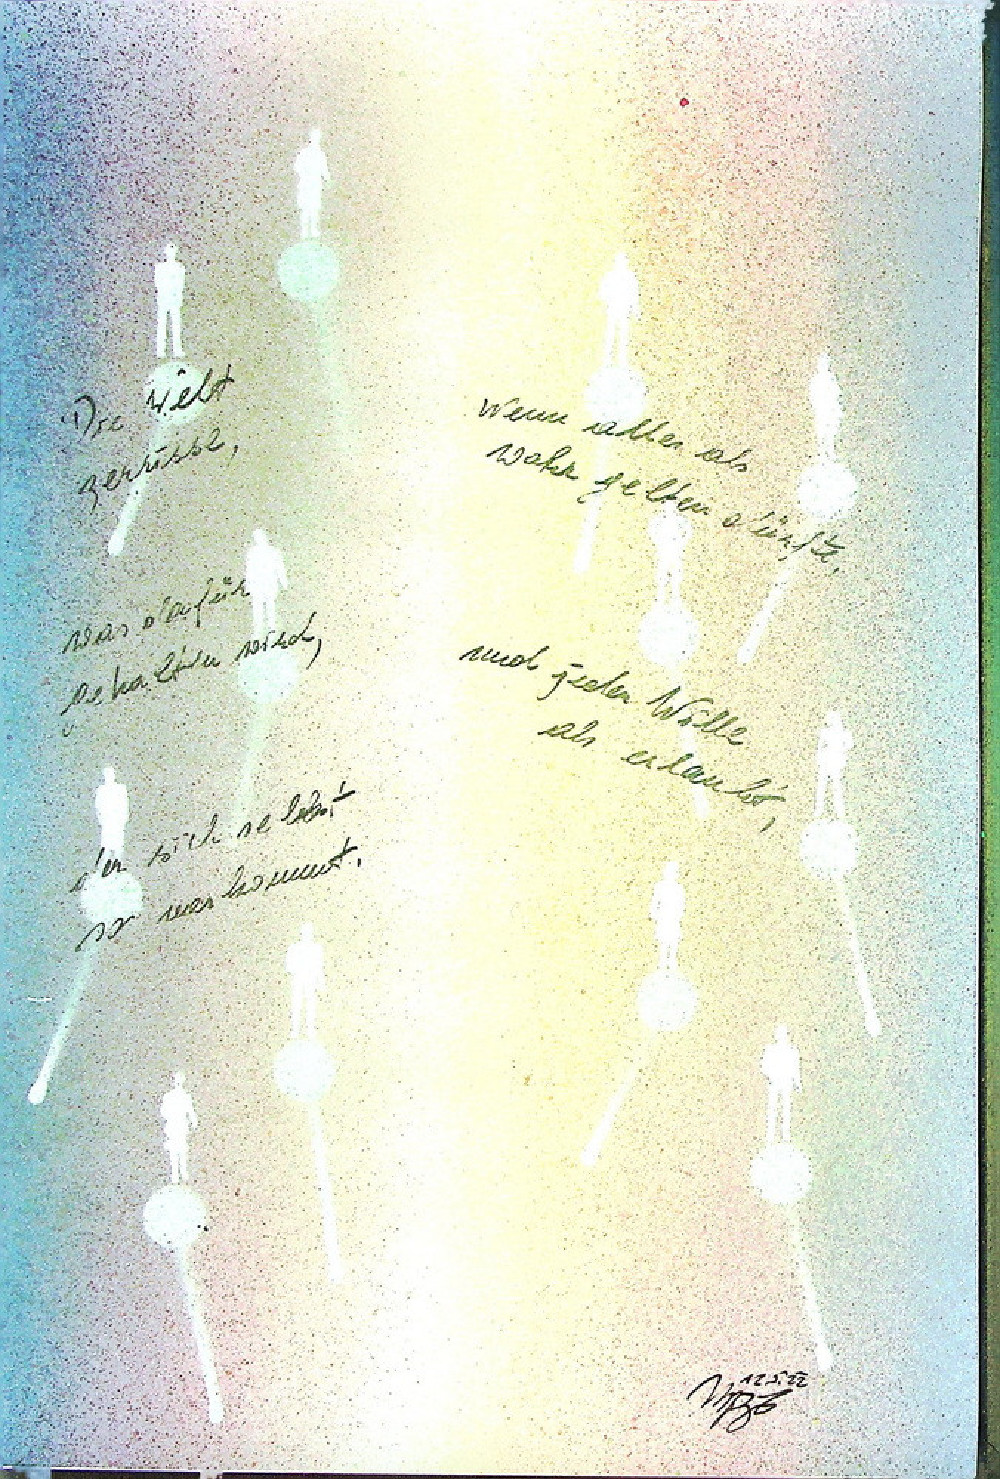 Die Welt
zerrisse,
was dafür
gehalten wird,
der sich selbst
so vorkommt.
Wenn alles als
wahr gelten dürfte,
und jeder Wille
als erlaubt,
12.5.22